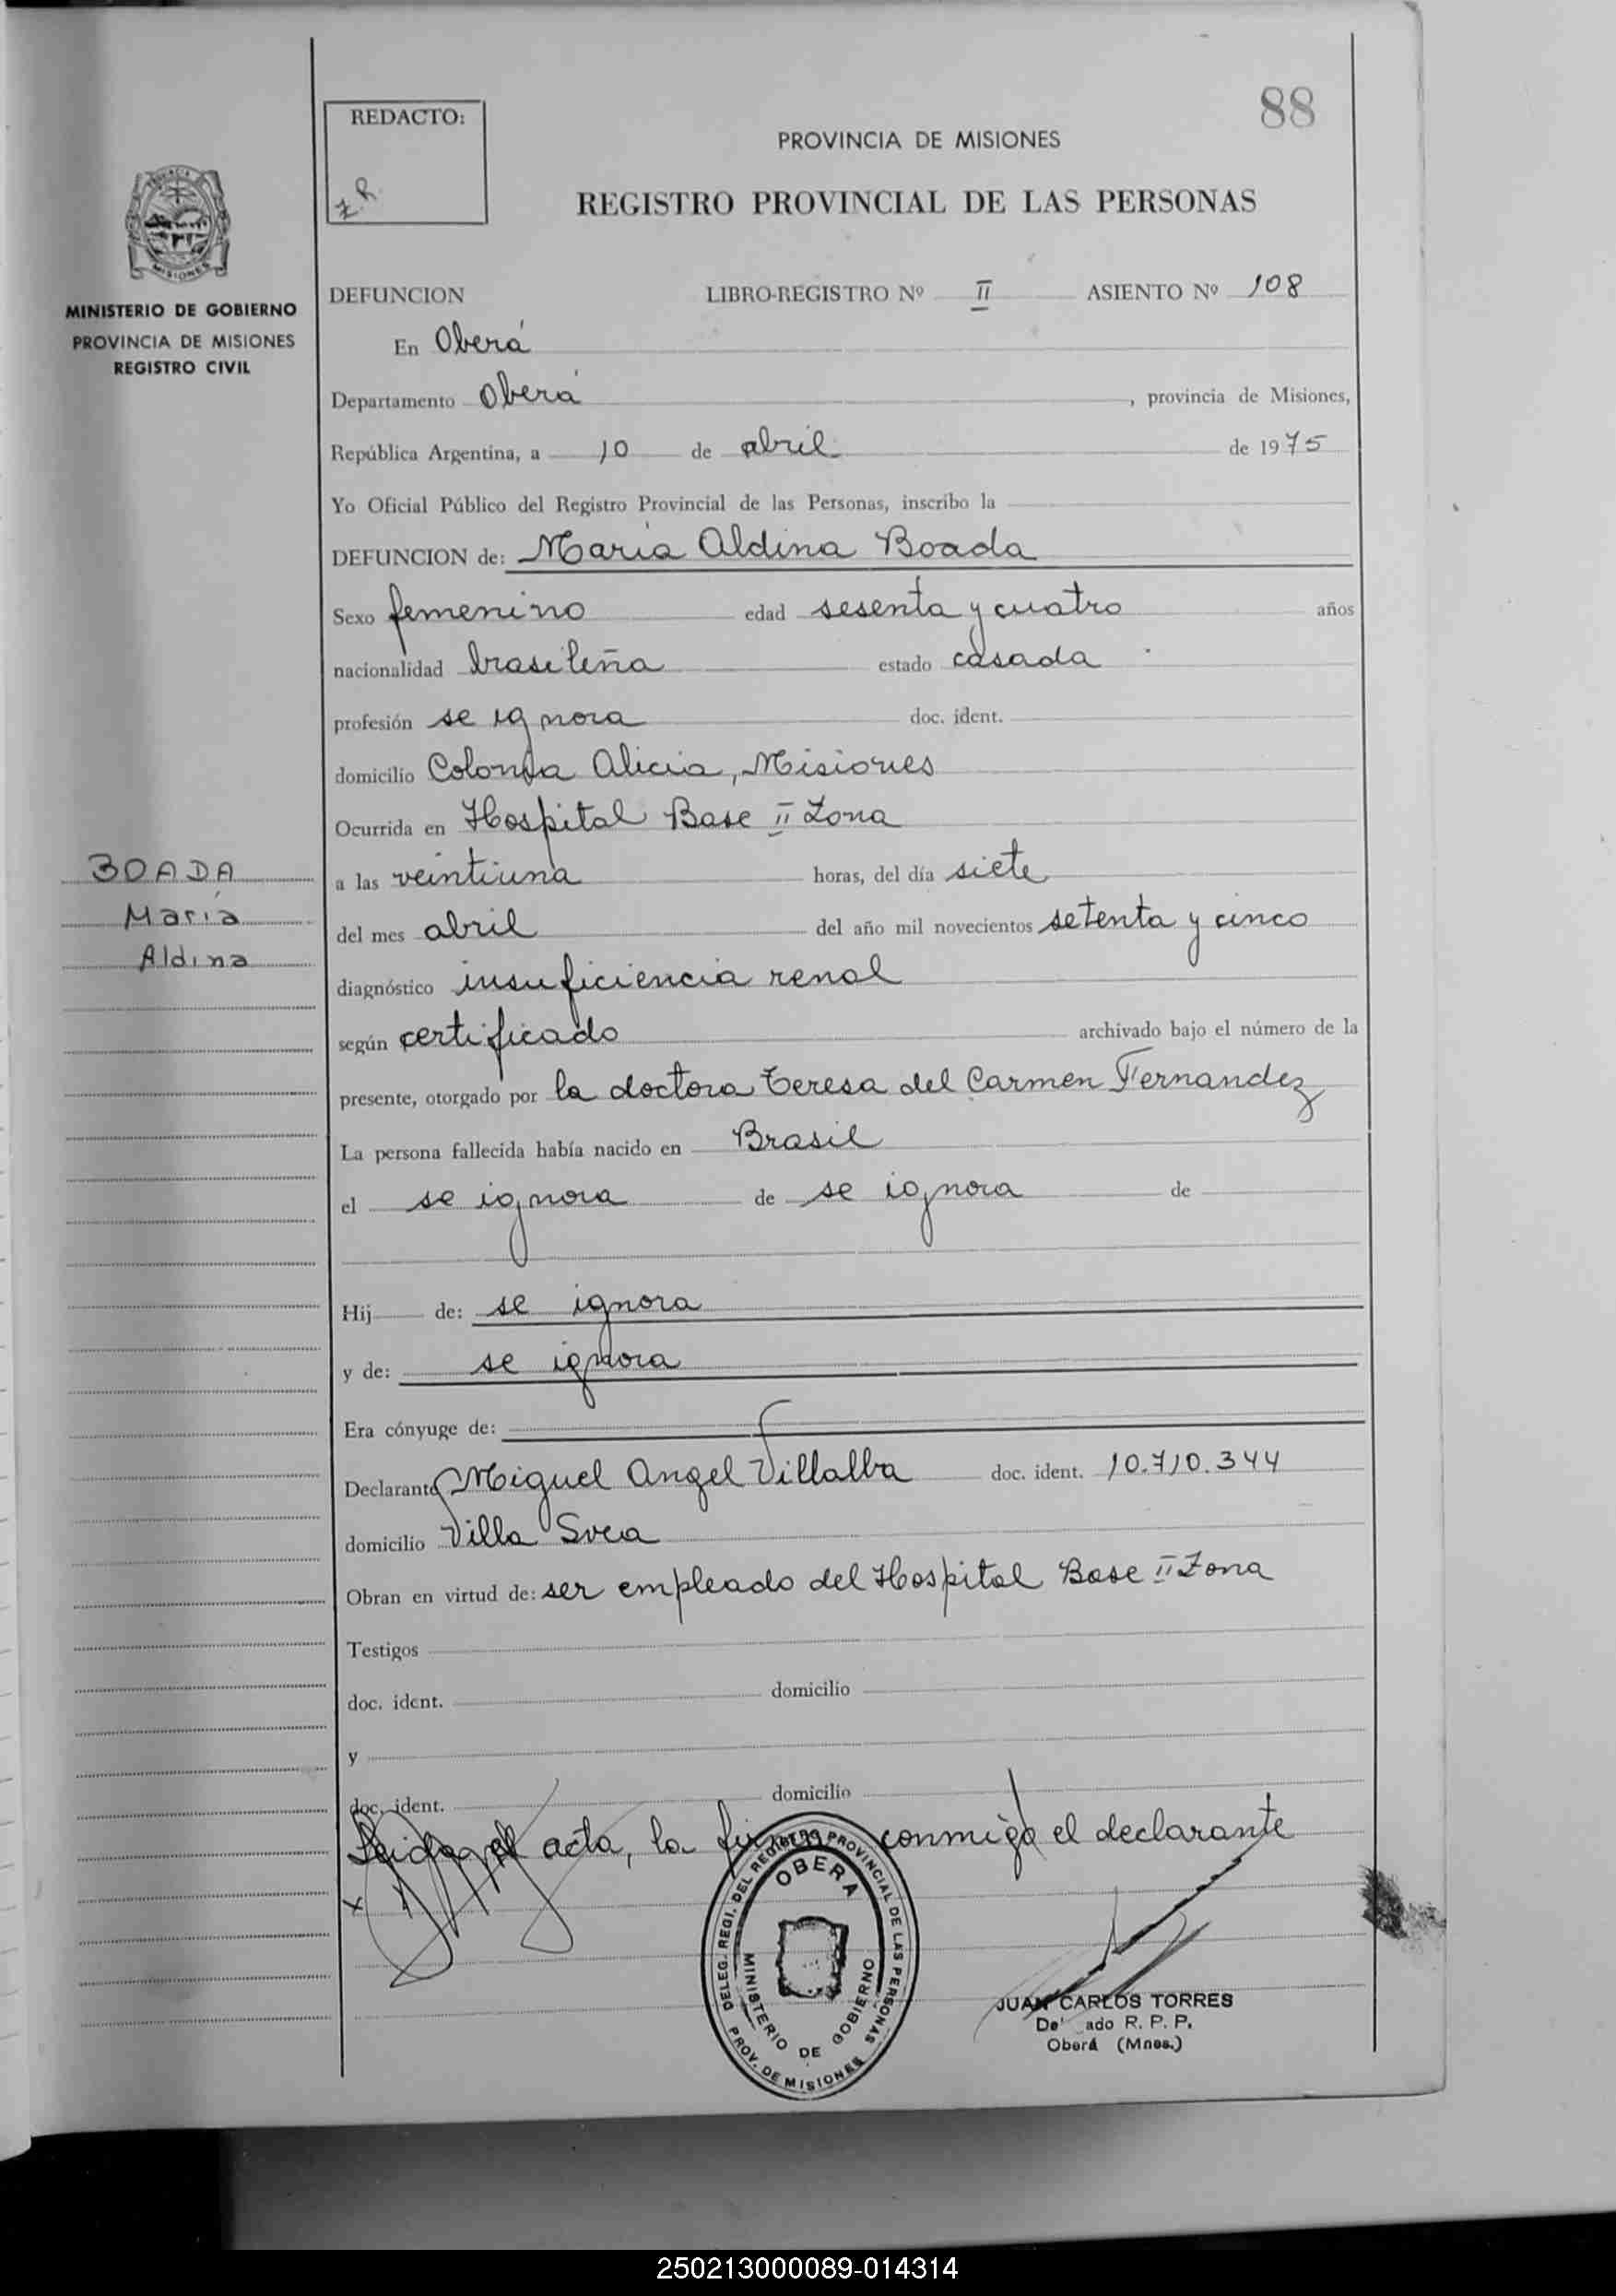 88
REDACTO:
Z.R.
PROVINCIA DE MISIONES
REGISTRO PROVINCIAL DE LAS PERSONAS
MISIONES
MINISTERIO DE GOBIERNO
PROVINCIA DE MISIONES
REGISTRO CIVIL
DEFUNCION LIBRO-REGISTRO Nº II ASIENTO Nº 108
En Oberá
Departamento Oberá, provincia de Misiones,
República Argentina, a 10 de abril de 1975
Yo Oficial Público del Registro Provincial de las Personas, inscribo la
DEFUNCION de: María Aldina Boada
Sexo femenino edad sesenta y cuatro años
nacionalidad brasileña estado casada
profesión se ignora doc. ident.
domicilio Colonia Alicia, Misiones
Ocurrida en Hospital Base II Zona
BOADA
María
Aldina
a las veintiuna horas, del día siete
del mes abril del año mil novecientos setenta y cinco
diagnóstico insuficiencia renal
según certificado archivado bajo el número de la
presente, otorgado por la doctora Teresa del Carmen Fernandez
La persona fallecida había nacido en Brasil
el se ignora de se ignora de
Hij de: se ignora
y de: se ignora
Era cónyuge de:
Declarante Miguel Angel Villalba doc. ident. 10.710.344
domicilio Villa Svea
Obran en virtud de: ser empleado del Hospital Base II Zona
Testigos
doc. ident. domicilio
y
doc. ident. domicilio
Leida el acta, la firma conmigo el declarante
DELEG. REGI. DEL REGISTRO PROVINCIAL DE LAS PERSONAS
OBERA
MINISTERIO DE GOBIERNO
PROV. DE MISIONES
JUAN CARLOS TORRES
ado R. P. P.
Oberá (Mnes.)
250213000089-014314